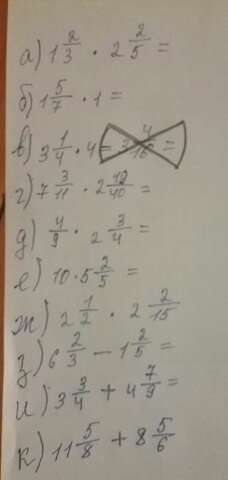 а) 1 2/3 · 2 2/5 =
б) 1 5/7 · 1 =
в) 3 1/4 · 4 =
г) 7 3/11 · 2 19/40 =
д) 4/9 · 2 3/4 =
е) 10 · 5 2/5 =
ж) 2 1/2 · 2 2/15
з) 6 2/3 - 1 2/5 =
и) 3 3/4 + 4 7/9 =
к) 11 5/8 + 8 5/6